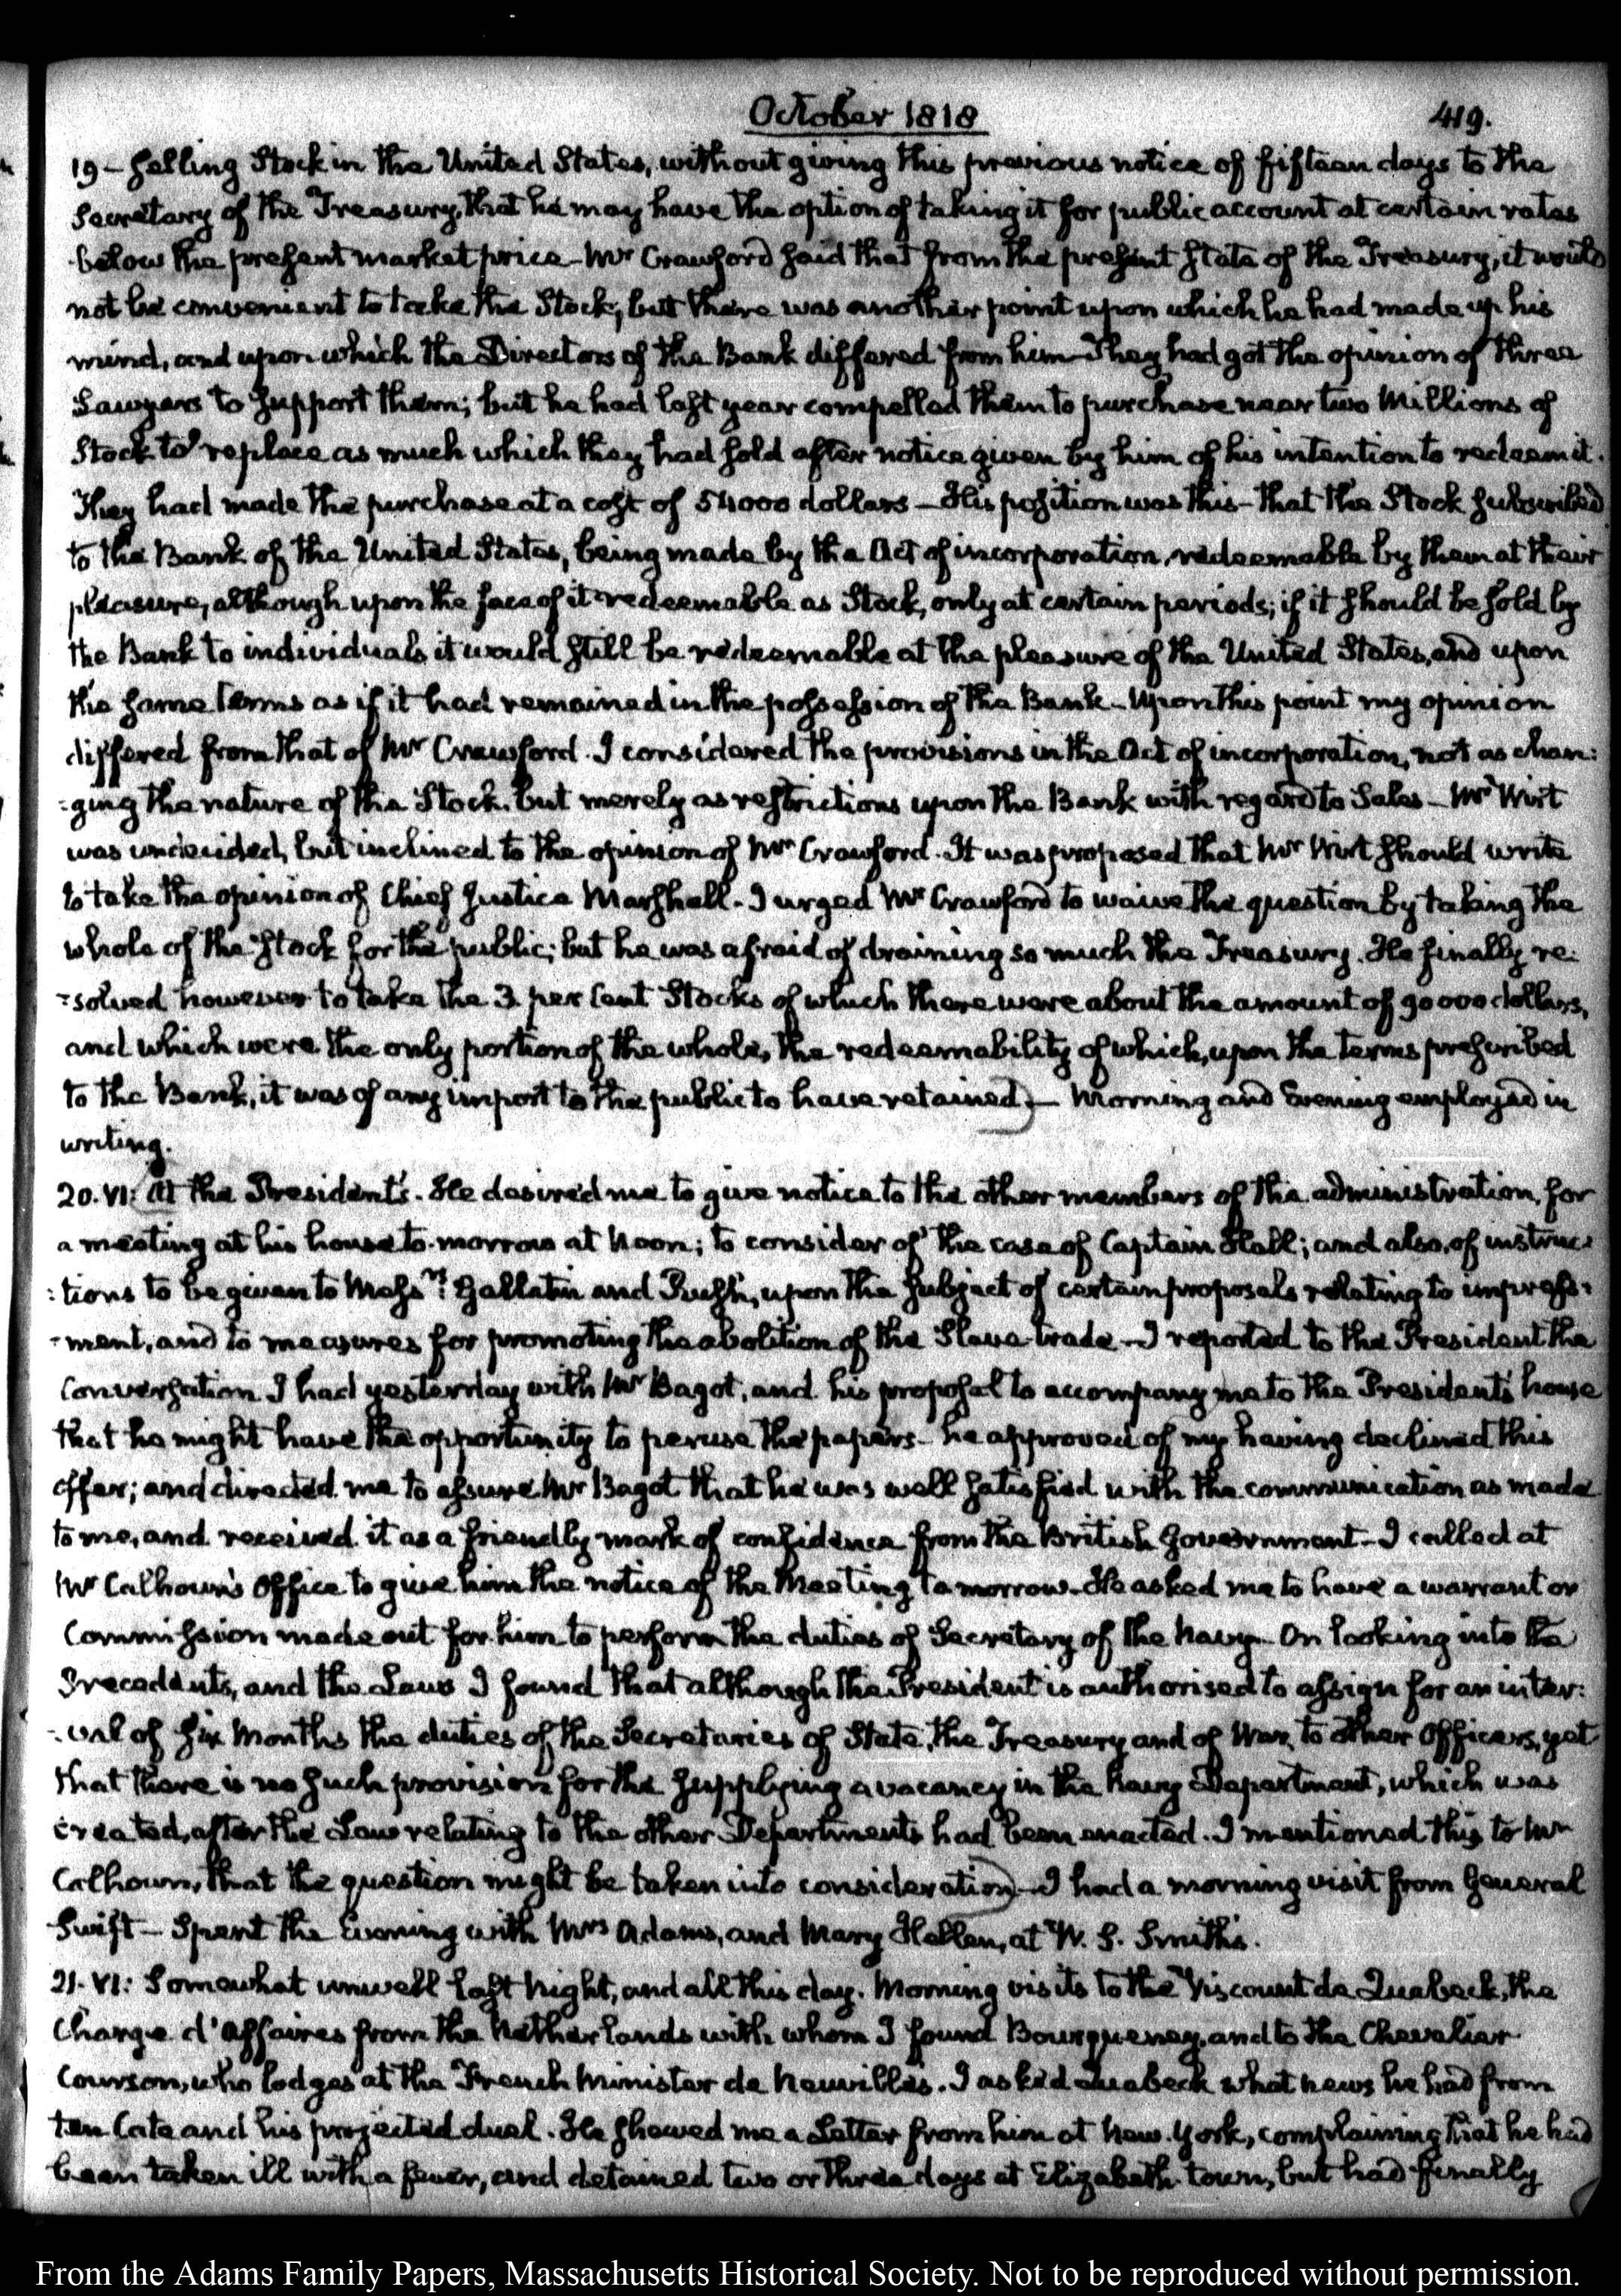 October 1818
419.
19 - selling Stock in the United States, without giving this previous notice of fifteen days to the
Secretary of the Treasury, that he may have the option of taking it for public account at certain rates
below the present market price - Mr Crawford said that from the present state of the Treasury, it would
not be convenient to take the Stock, but there was another point upon which he had made up his
mind, and upon which the Directors of the Bank differed from him - They had got the opinion of three
Lawyers to support them; but he had last year compelled them to purchase near two Millions of
Stock to replace as much which they had sold after notice given by him of his intention to redeem it.
They had made the purchase at a cost of 54000 dollars - His position was this - that the Stock subscribed
to the Bank of the United States, being made by the Act of incorporation, redeemable by them at their
pleasure, although upon the face of it redeemable as Stock, only at certain periods; if it should be sold by
the Bank to individuals it would still be redeemable at the pleasure of the United States, and upon
the same terms as if it had remained in the possession of the Bank - Upon this point my opinion
differed from that of Mr Crawford. I considered the provisions in the Act of incorporation, not as chan:
:ging the nature of the Stock, but merely as restrictions upon the Bank with regard to Sales - Mr Wirt
was undecided, but inclined to the opinion of Mr Crawford. It was proposed that Mr Wirt should write
to take the opinion of Chief Justice Marshall. I urged Mr Crawford to waive the question by taking the
whole of the Stock for the public; but he was afraid of draining so much the Treasury. He finally re:
:solved however to take the 3 per Cent Stocks of which there were about the amount of 90000 dollars,
and which were the only portion of the whole, the redeemability of which, upon the terms prescribed
to the Bank, it was of any import to the public to have retained) - Morning and Evening employed in
writing.
20. VI: At the President's. He desired me to give notice to the other members of the administration, for
a meeting at his house to-morrow at Noon; to consider of the case of Captain Hall; and also, of instruc:
:tions to be given to Messrs. Gallatin and Rush, upon the subject of certain proposals relating to impress:
:ment, and to measures for promoting the abolition of the Slave-trade - I reported to the President the
conversation I had yesterday with Mr Bagot, and his proposal to accompany me to the President's house
that he might have the opportunity to peruse the papers - he approved of my having declined this
offer; and directed me to assure Mr Bagot that he was well satisfied with the communication as made
to me, and received it as a friendly mark of confidence from the British Government - I called at
Mr Calhoun's Office to give him the notice of the Meeting tomorrow - He asked me to have a warrant or
Commission made out for him to perform the duties of Secretary of the Navy - On looking into the
Precedents, and the Laws I found that although the President is authorised to assign for an inter:
:val of six Months the duties of the Secretaries of State, the Treasury and of War, to other Officers, yet
that there is no such provision for the supplying a vacancy in the Navy Department, which was
created, after the Law relating to the other Departments had been enacted. I mentioned this to Mr
Calhoun, that the question might be taken into consideration) - I had a morning visit from General
Swift - Spent the Evening with Mrs Adams, and Mary Hellen, at W. S. Smith's.
21. VI: Somewhat unwell last Night, and all this day. Morning visits to the Viscount de Quabeck, the
Chargé d'Affaires from the Netherlands with whom I found Bourqueney, and to the Chevalier
Courson, who lodges at the French Minister de Neuville's. I asked Quabeck what news he had from
ten Cate and his projected duel. He shewed me a Letter from him at New-York, complaining that he had
been taken ill with a fever, and detained two or three days at Elizabeth-town, but had finally
From the Adams Family Papers, Massachusetts Historical Society. Not to be reproduced without permission.